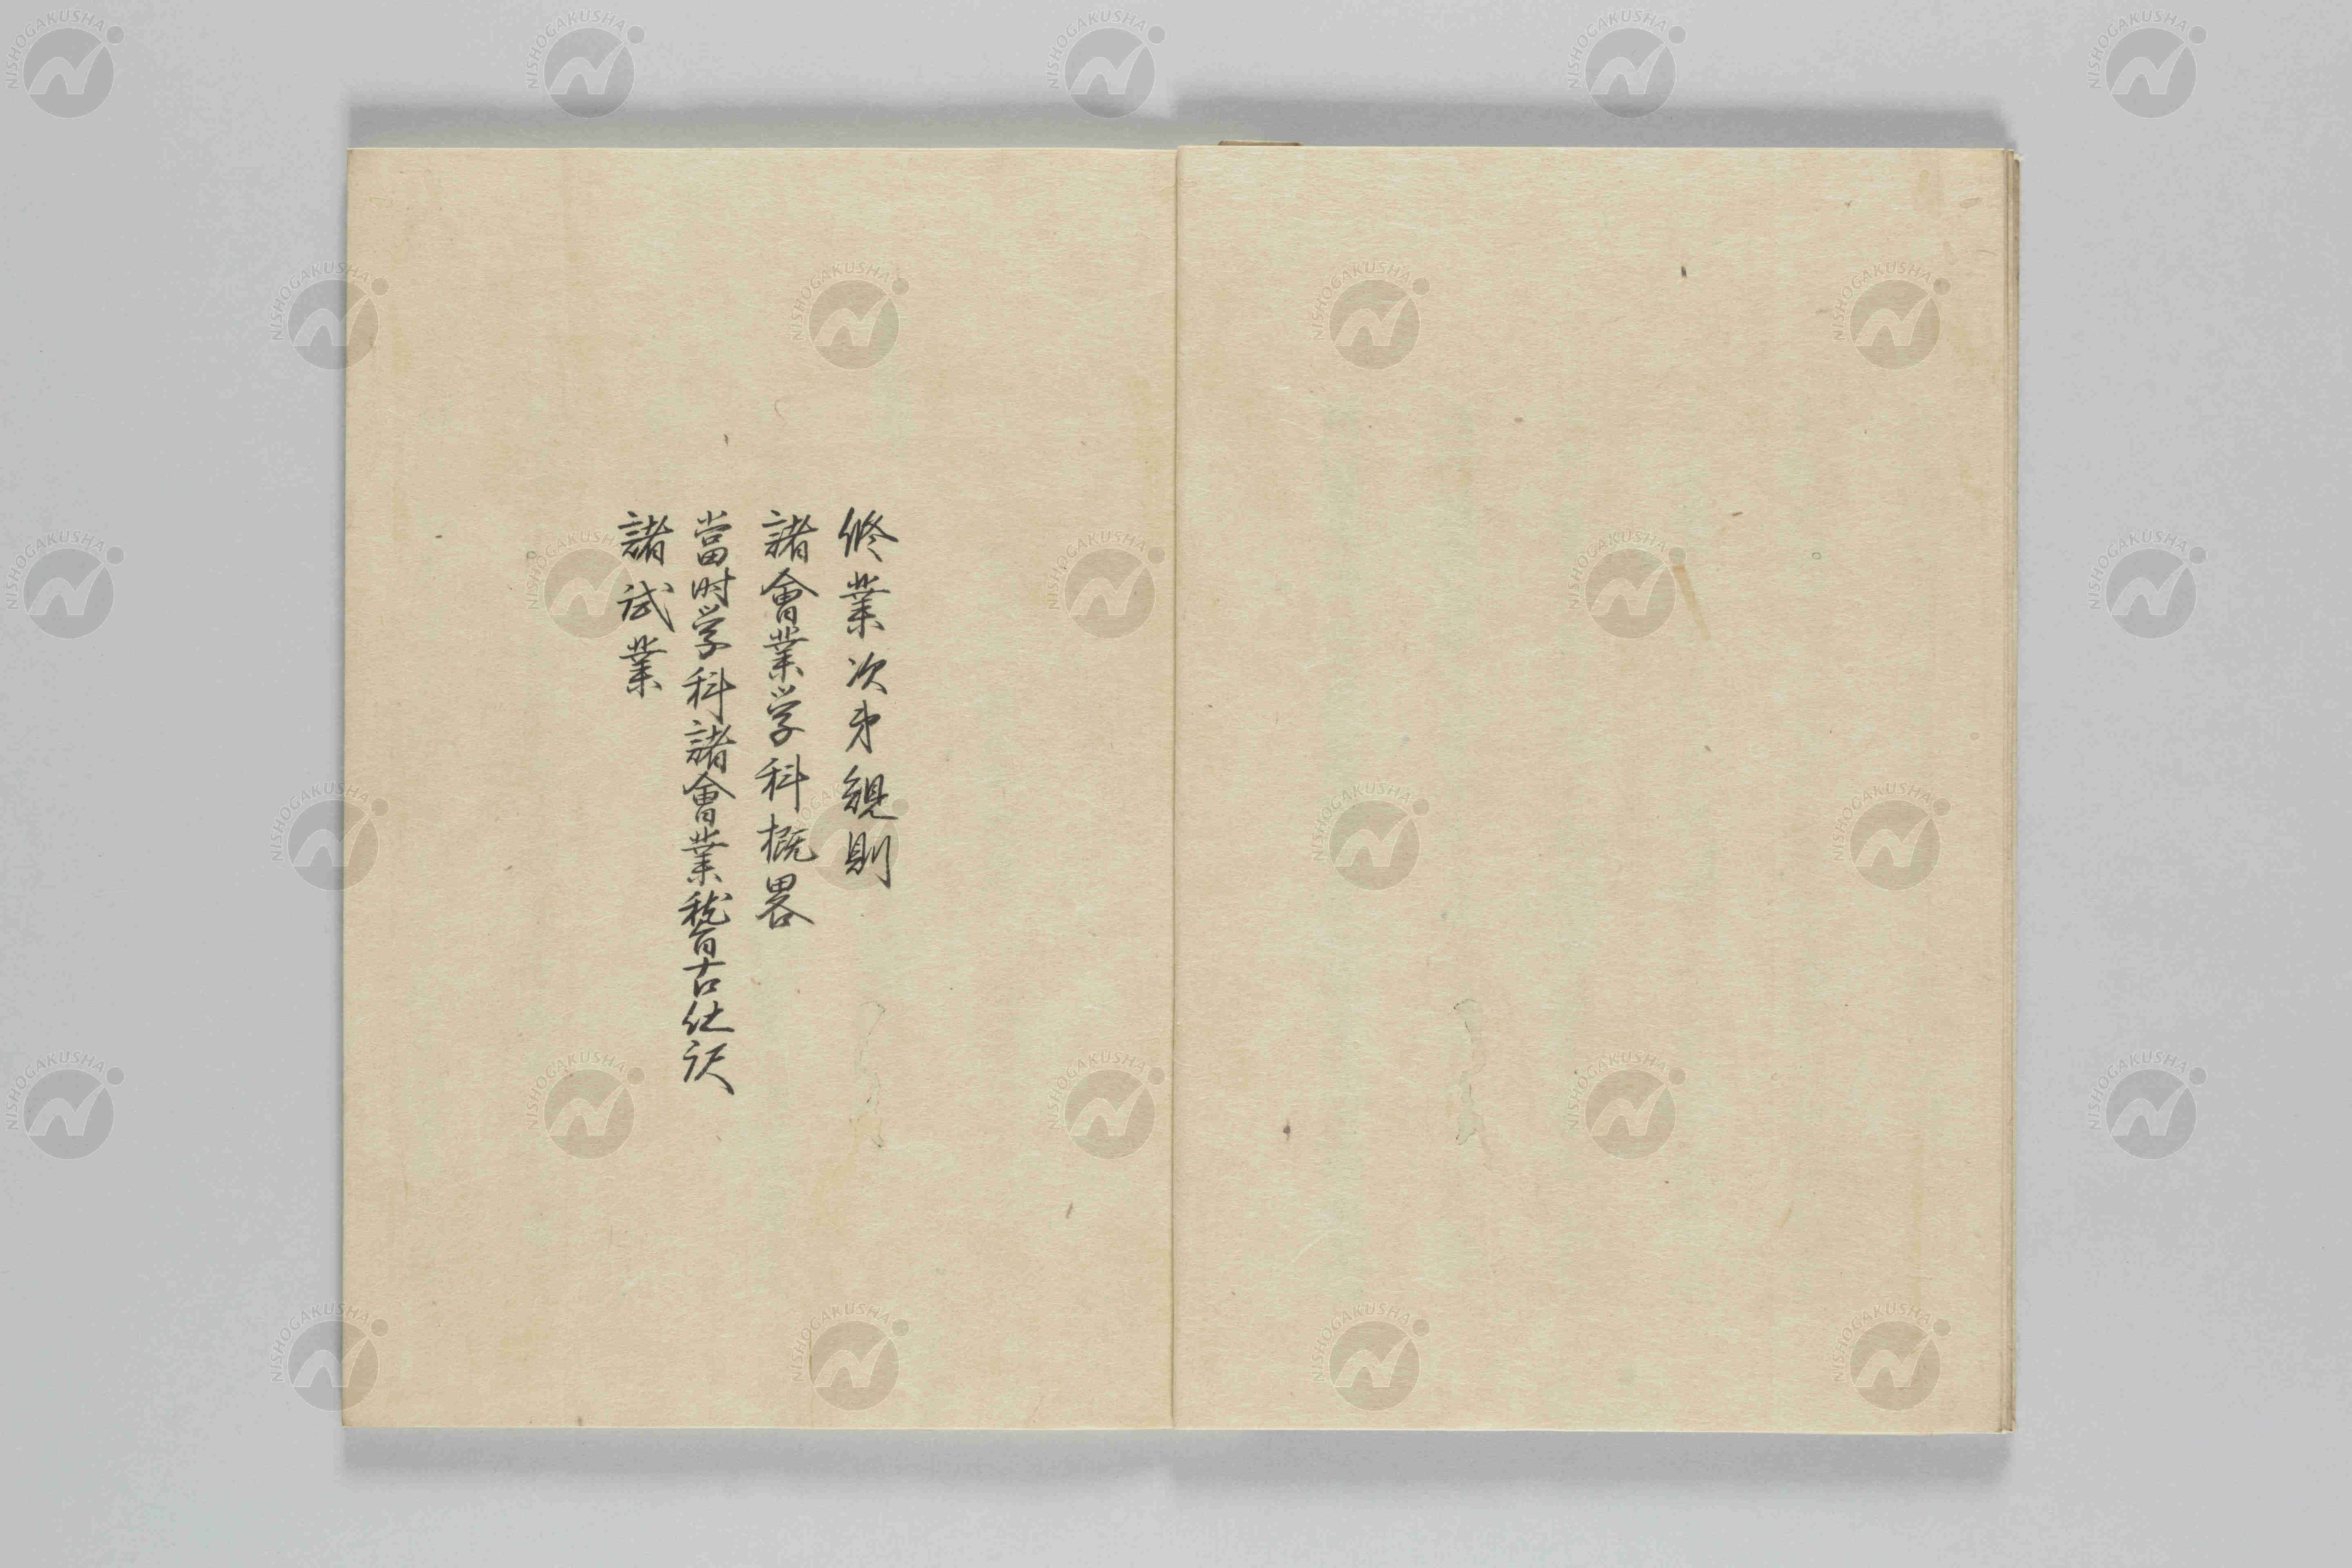 修業次第規則
諸會業学科概畧
當时学科諸會業稽古仕訳
諸試業
NISHOGAKUSHA